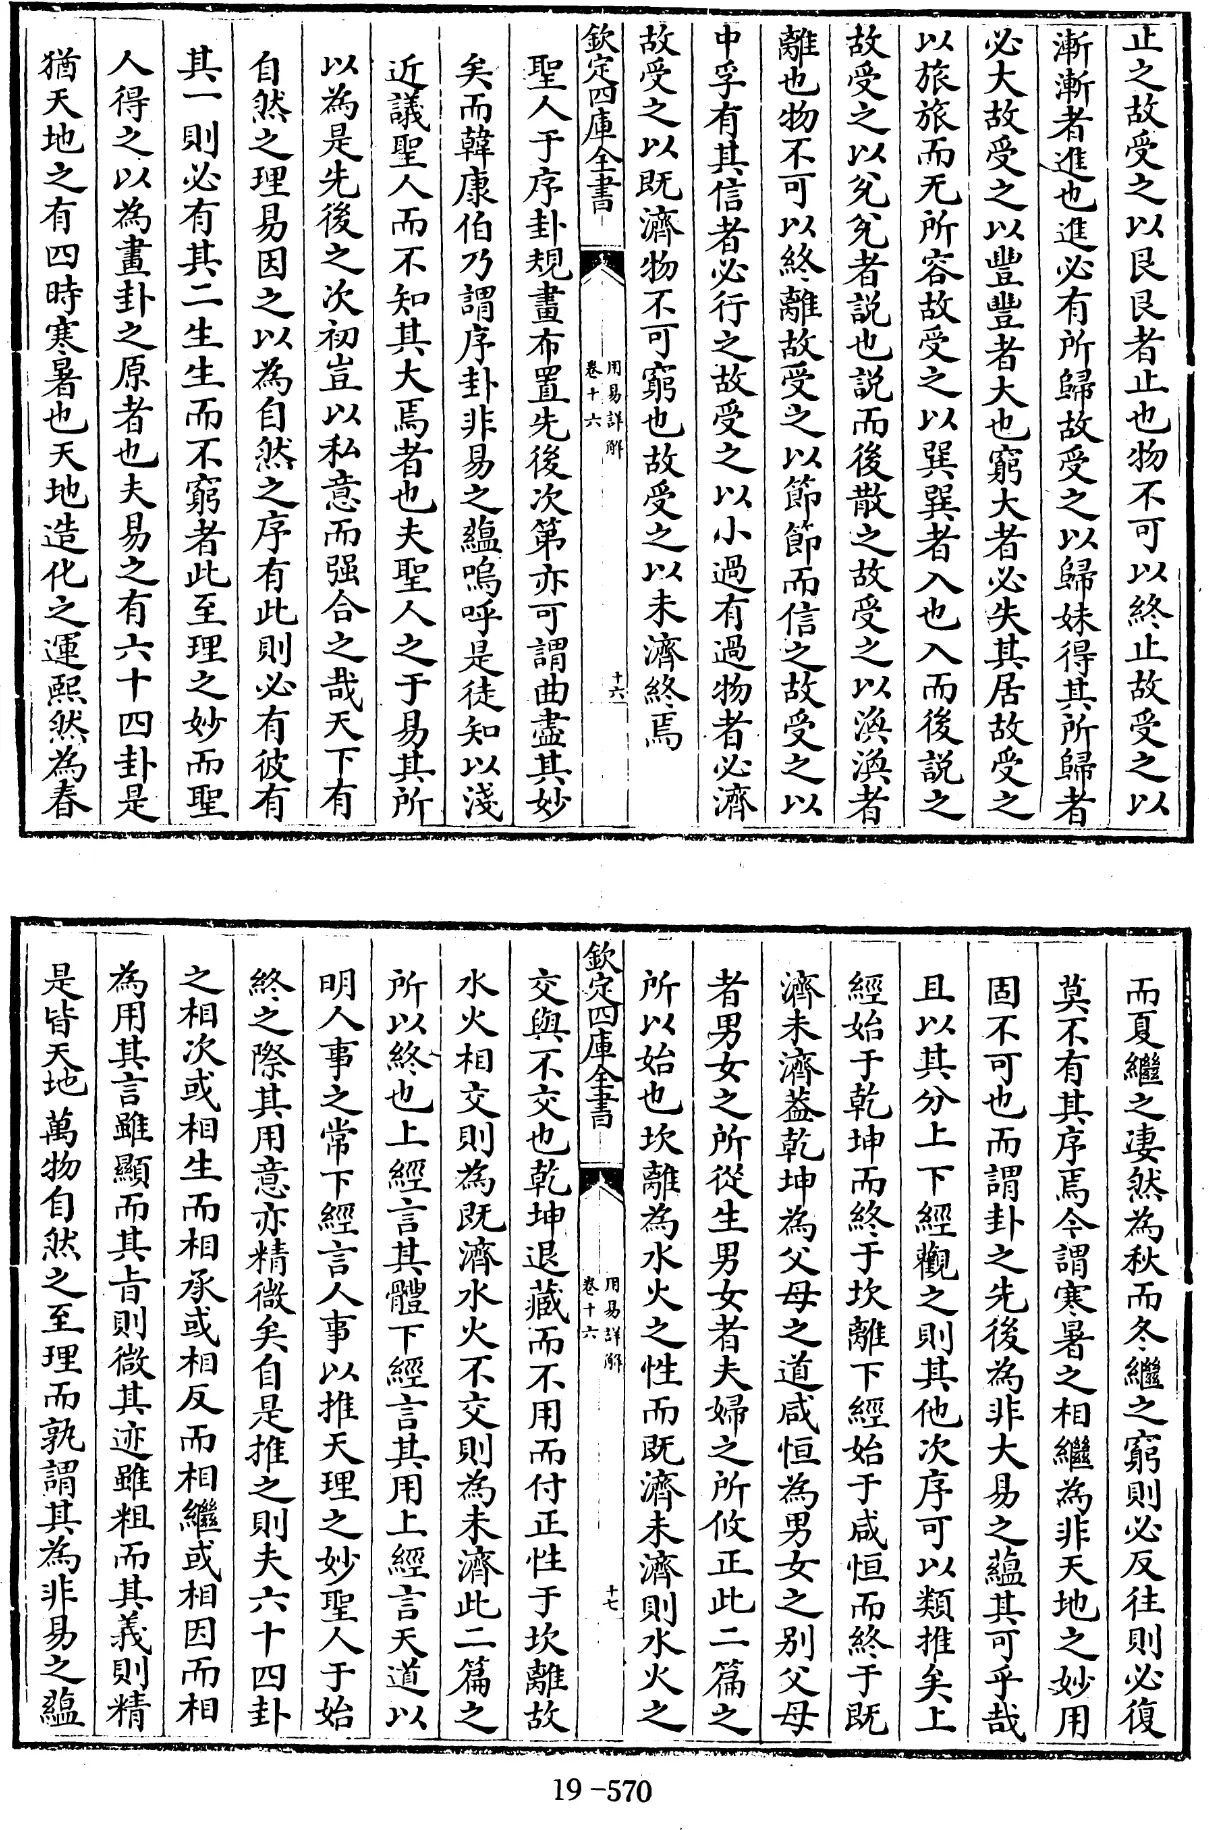 止之故受之以艮艮者止也物不可以終止故受之以
漸漸者進也進必有所歸故受之以歸妹得其所歸者
必大故受之以豐豐者大也窮大者必失其居故受之
以旅旅而无所容故受之以巽巽者入也入而後説之
故受之以兊兊者説也説而後散之故受之以渙渙者
離也物不可以終離故受之以節節而信之故受之以
中孚有其信者必行之故受之以小過有過物者必濟
故受之以既濟物不可窮也故受之以未濟終焉
欽定四庫全書
用易詳解
卷十六
十六
聖人于序卦規畫布置先後次第亦可謂曲盡其妙
矣而韓康伯乃謂序卦非易之蘊嗚呼是徒知以淺
近議聖人而不知其大焉者也夫聖人之于易其所
以為是先後之次初豈以私意而强合之哉天下有
自然之理易因之以為自然之序有此則必有彼有
其一則必有其二生生而不窮者此至理之妙而聖
人得之以為畫卦之原者也夫易之有六十四卦是
猶天地之有四時寒暑也天地造化之運熙然為春
而夏繼之凄然為秋而冬繼之窮則必反往則必復
莫不有其序焉今謂寒暑之相繼為非天地之妙用
固不可也而謂卦之先後為非大易之蘊其可乎哉
且以其分上下經觀之則其他次序可以類推矣上
經始于乾坤而終于坎離下經始于咸恒而終于既
濟未濟葢乾坤為父母之道咸恒為男女之别父母
者男女之所從生男女者夫婦之所攸正此二篇之
所以始也坎離為水火之性而既濟未濟則水火之
欽定四庫全書
用易詳解
卷十六
十七
交與不交也乾坤退藏而不用而付正性于坎離故
水火相交則為既濟水火不交則為未濟此二篇之
所以終也上經言其體下經言其用上經言天道以
明人事之常下經言人事以推天理之妙聖人于始
終之際其用意亦精微矣自是推之則夫六十四卦
之相次或相生而相承或相反而相繼或相因而相
為用其言雖顯而其㫖則微其迹雖粗而其義則精
是皆天地萬物自然之至理而孰謂其為非易之蘊
19-570